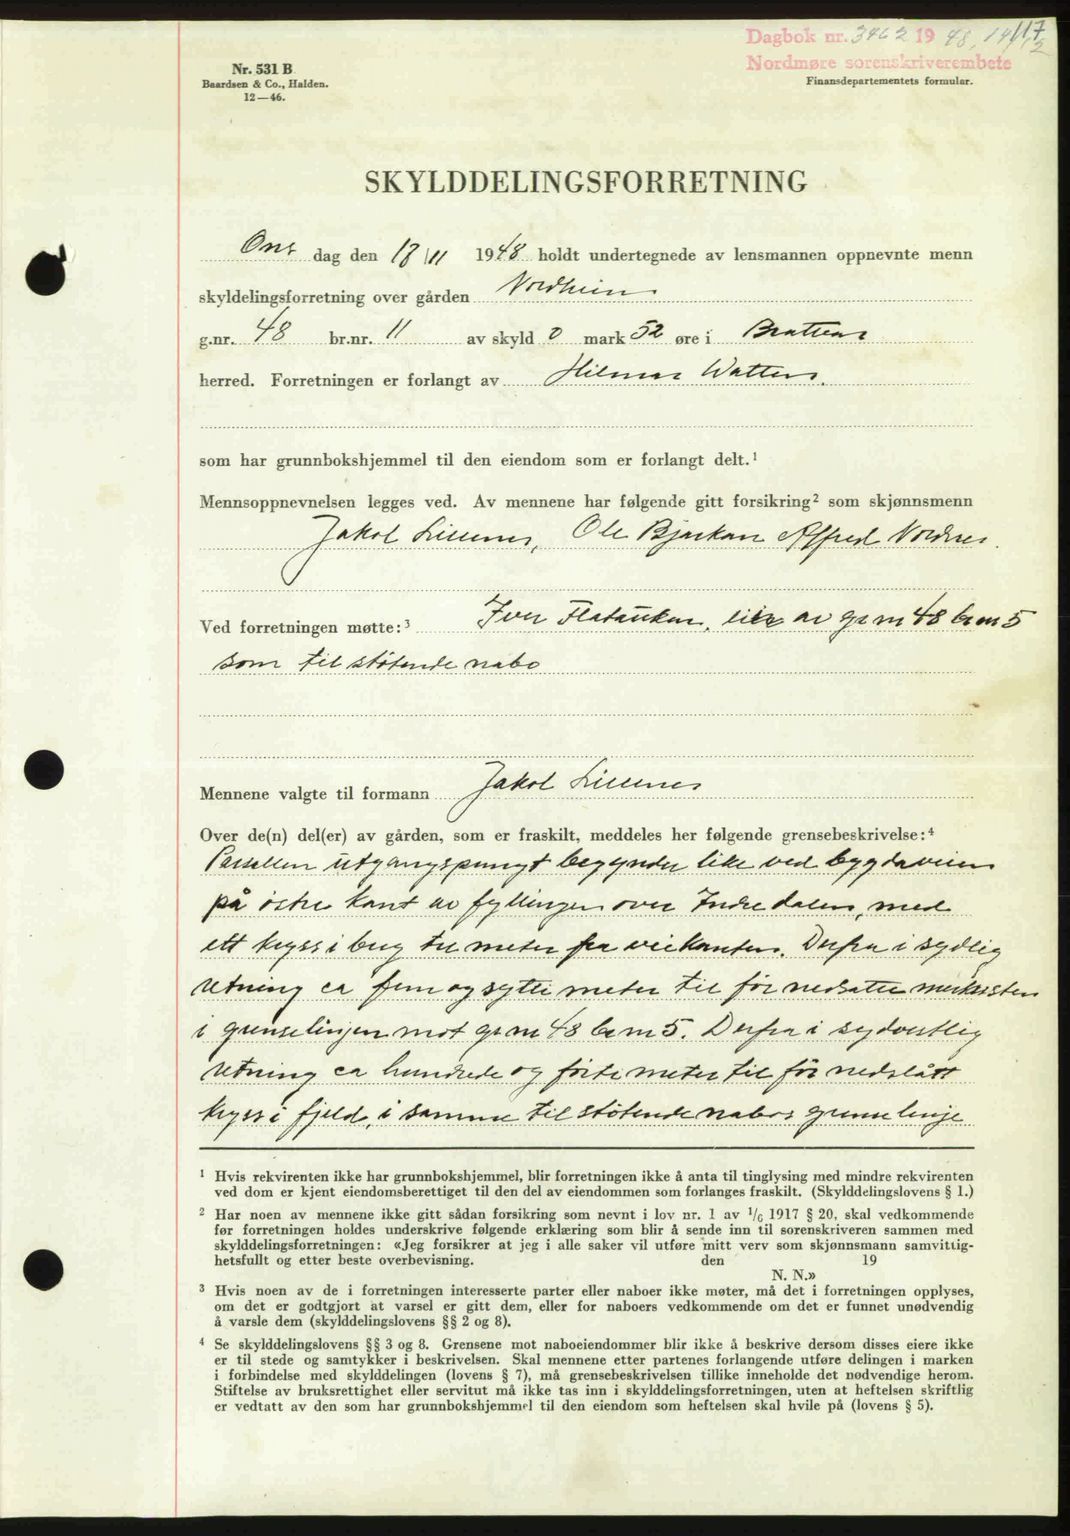 Dagbok nr. 3462 19 48, 14/12
117
Nordmøre sorenskriverembete
Finansdepartementets formular.
Nr. 531 B
Baardsen & Co., Halden.
12—46.
SKYLDDELINGSFORRETNING
Ons dag den 18/11 1948 holdt undertegnede av lensmannen oppnevnte menn
skyldelingsforretning over gården Nordheim
g.nr. 48 br.nr. 11 av skyld 0 mark 52 øre i Brattvær
herred. Forretningen er forlangt av Hilmar Watten.
som har grunnbokshjemmel til den eiendom som er forlangt delt.¹
Mennsoppnevnelsen legges ved. Av mennene har følgende gitt forsikring² som skjønnsmenn
Jakob Lillenes, Ole Bjørkan Alfred Nordnes.
Ved forretningen møtte:³ Iver Flatauken, eier av grnr 48 brnr 5
som til støtende nabo
Mennene valgte til formann Jakob Lillenes
Over de(n) del(er) av gården, som er fraskilt, meddeles her følgende grensebeskrivelse:⁴
Parsellen utgangspungt begynder like ved bygdaveien
på østre kant av fyllingen over Indredalen, med
ett kryss i berg ti meter fra veikanten. Derfra i sydlig
retning ca fem og sytti meter til før nedsatte merkesten
i grenselinjen mot grnr 48 brnr 5. Derfra i sydvestlig
retning ca hundrede og førti meter til før nedslått
kryss i fjeld, i samme til støtende nabos grenselinje
¹ Hvis rekvirenten ikke har grunnbokshjemmel, blir forretningen ikke å anta til tinglysing med mindre rekvirenten
ved dom er kjent eiendomsberettiget til den del av eiendommen som forlanges fraskilt. (Skylddelingslovens § 1.)
² Har noen av mennene ikke gitt sådan forsikring som nevnt i lov nr. 1 av 1/6 1917 § 20, skal vedkommende
før forretningen holdes underskrive følgende erklæring som blir å sende inn til sorenskriveren sammen med
skylddelingsforretningen: «Jeg forsikrer at jeg i alle saker vil utføre mitt verv som skjønnsmann samvittig-
hetsfullt og etter beste overbevisning. den 19
N. N.»
³ Hvis noen av de i forretningen interesserte parter eller naboer ikke møter, må det i forretningen opplyses,
om det er godtgjort at varsel er gitt dem, eller for naboers vedkommende om det er funnet unødvendig
å varsle dem (skylddelingslovens §§ 2 og 8).
⁴ Se skylddelingslovens §§ 3 og 8. Grensene mot naboeiendommer blir ikke å beskrive dersom disses eiere ikke
er til stede og samtykker i beskrivelsen. Skal mennene etter partenes forlangende utføre delingen i marken
i forbindelse med skylddelingen (lovens § 7), må grensebeskrivelsen tillike inneholde det nødvendige herom.
Stiftelse av bruksrettighet eller servitut må ikke tas inn i skylddelingsforretningen, uten at heftelsen skriftlig
er vedtatt av den som har grunnbokshjemmel til den eiendom som heftelsen skal hvile på (lovens § 5).